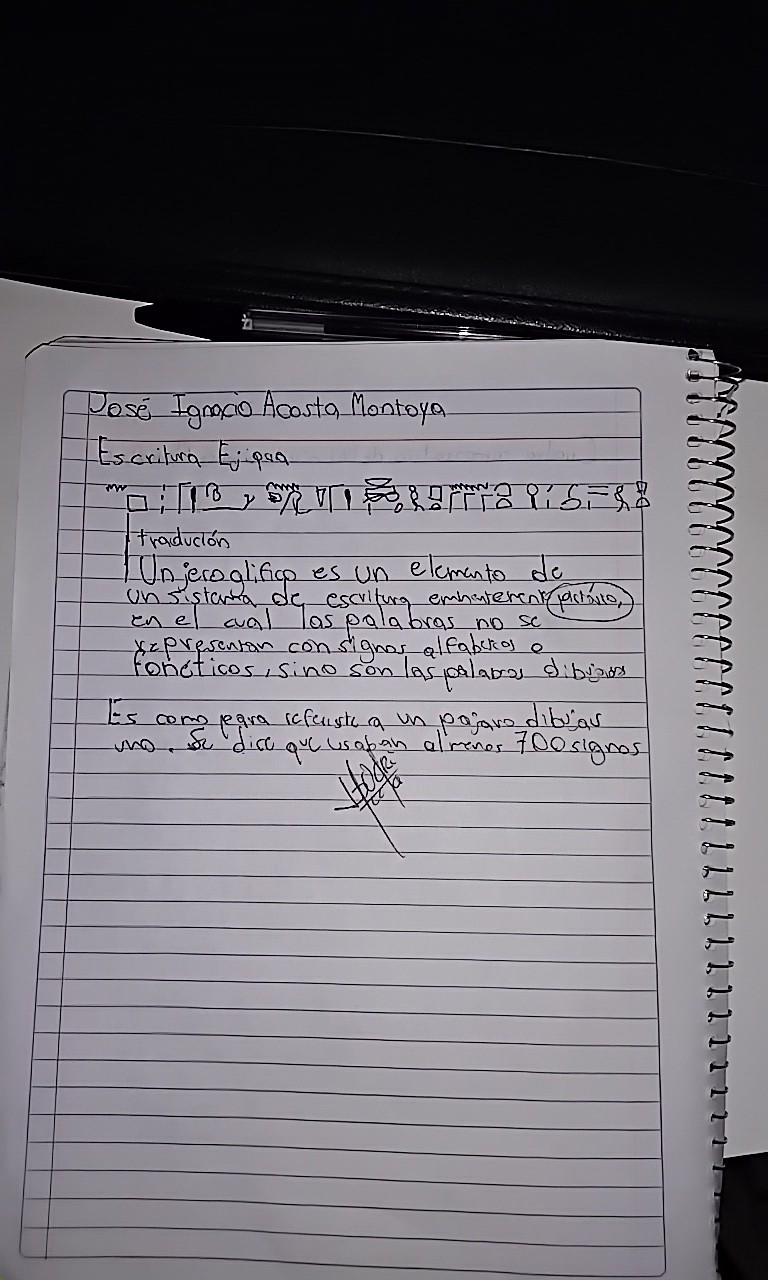 José Ignacio Acosta Montoya
Escritura Ejipaa
tradución
Un jeroglifico es un elemento de
un sistema de escritura
en el cual las palabras no se
representan con signos alfabeticos o
fonéticos, sino son las palabras dibujadas
Es como para referirte a un pajaro dibujas
uno. Se dice que usaban al menos 700 signos